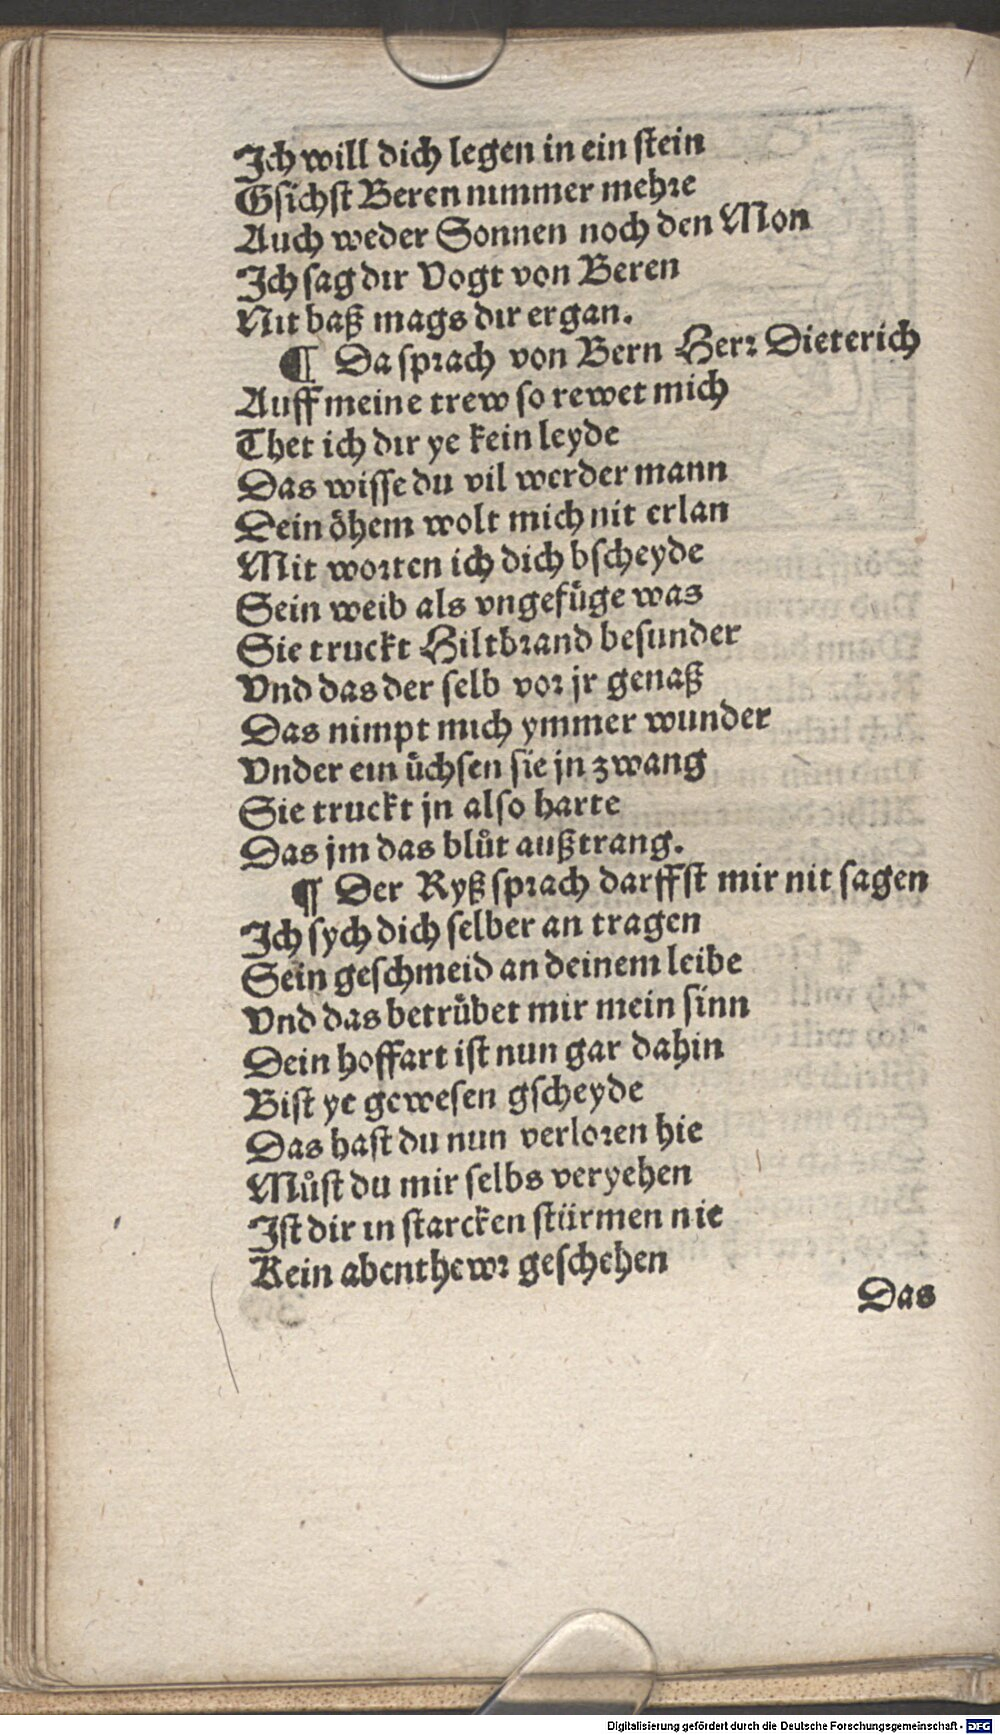 Ich will dich legen in ein stein
Gsichst Beren nimmer mehre
Auch weder Sonnen noch den Mon
Ich sag dir Vogt von Beren
Nit baß mags dir ergan.
¶ Da sprach von Bern Herr Dieterich
Auff meine trew so rewet mich
Thet ich dir ye kein leyde
Das wisse du vil werder mann
Dein öhem wolt mich nit erlan
Mit worten ich dich bscheyde
Sein weib als vngefüge was
Sie truckt Hiltbrand besunder
Vnd das der selb vor jr genaß
Das nimpt mich ymmer wunder
Vnder ein üchsen sie jn zwang
Sie truckt jn also harte
Das jm das blůt außtrang.
¶ Der Ryß sprach darffst mir nit sagen
Ich sych dich selber an tragen
Sein geschmeid an deinem leibe
Vnd das betrübet mir mein sinn
Dein hoffart ist nun gar dahin
Bist ye gewesen gscheyde
Das hast du nun verloren hie
Můst du mir selbs veryehen
Ist dir in starcken stürmen nie
Kein abenthewr geschehen
Das
Digitalisierung gefördert durch die Deutsche Forschungsgemeinschaft - DFG